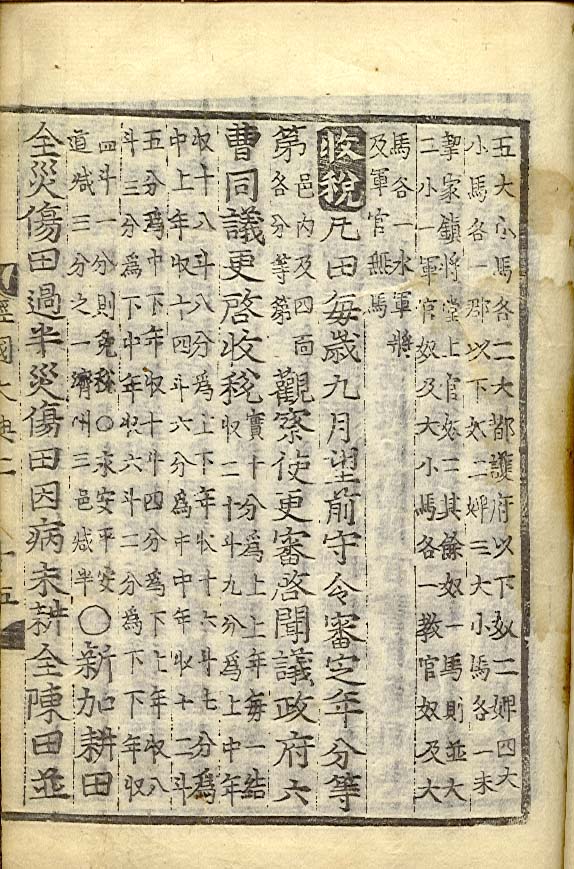 五大小馬各二大都護府以下奴二婢四大
小馬各一郡以下奴二婢三大小馬各一未
挈家鎭將堂上官奴二其餘奴一馬則並大
二小一軍官奴及大小馬各一敎官奴及大
馬各一水軍將
及軍官無馬
收稅凡田每歲九月望前守令審定年分等
第邑內及四面
各分等第
觀察使更審啓聞議政府六
曹同議更啓收稅實十分爲上上年每一結
收二十斗九分爲上中年
收十八斗八分爲上下年收十六斗七分爲
中上年收十四斗六分爲中中年收十二斗
五分爲中下年收十斗四分爲下上年收八
斗三分爲下中年收六斗二分爲下下年收
四斗一分則免稅○永安平安
道減三分之一濟州三邑減半
○新加耕田
全災傷田過半災傷田因病未耕全陳田並
經國大典二 十五